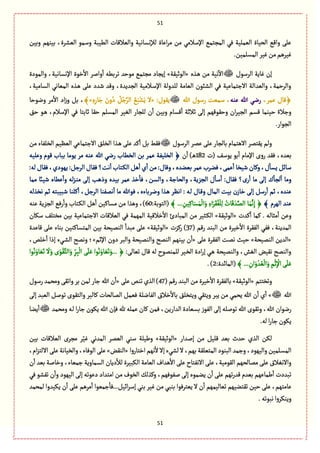 51
على واقع الحياة العملية في المجتمع الإسلامي من مراعاة للإنسانية والعلاقات الطيبة وسمو العشرة، بينهم وبين
غيرهم من غير المسلمين.
إن غاية الرسول ﷺ الآنية من هذه «الوثيقة» إيجاد مجتمع موحد تربطه أواصر الأخوة الإنسانية، والمودة
والرحمة، والعدالة الاجتماعية في الشئون العامة للدولة الإسلامية الجديدة، وقد شدد على هذه المعاني السامية،
«قال عمر - رضي الله عنه - سمعت رسول الله ﷺ يقول: «لَا يَشْبَعُ الرَّجُلُ دُونَ جَارِهِ»، بل وزاد الأمر وضوحا
وجلاء حينما قسم الجيران وحقوقهم إلى ثلاثة أقسام وبين أن للجار الغير المسلم حقا ثابتا في الإسلام، هو حق
الجوار.
ولم يقتصر الاهتمام بالجار على عصر الرسول ﷺ فقط بل أكد على هذا الخلق الاجتماعي العظيم الخلفاء من
بعده، فقد روى الإمام أبو يوسف (ت 182هـ) أن ( الخليفة عمر بن الخطاب رضي الله عنه مر يوما بباب قوم وعليه
سائل يسأل، وكان شيخا أعمى، فضرب عمر بعضده، وقال: من أي أهل الكتاب أنت؟ فقال الرجل: يهودي، فقال له:
وما ألجأك إلى ما أرى؟ فقال: أسأل الجزية، والحاجة، والسن، فأخذ عمر بيده وذهب إلى منزله وأعطاه شيئا مما
عنده، ثم أرسل إلى خازن بيت المال وقال له: انظر هذا وضرباءه، فوالله ما أنصفنا الرجل، أكلنا شبيبته ثم نخذله
عند الهرم ﴿ إِنَّمَا الصَّدَقَاتُ لِلْفُقَرَاءِ وَالْمَسَاكِينِ...﴾ (التوبة:60)، وهذا من مساكين أهل الكتاب وأرفع الجزية عنه
وعن أمثاله. كما أكدت «الوثيقة» الكثير من المبادئ الأخلاقية المهمة في العلاقات الاجتماعية بين مختلف سكان
المدينة، ففي الفقرة الأخيرة من البند رقم (37) ركزت «الوثيقة» على مبدأ النصيحة بين المتساكنين بناء على قاعدة
«الدين النصيحة» حيث نصت الفقرة على «أن بينهم النصح والنصيحة والبر دون الإثم»؛ ونصح الشيء إذا أخلص،
والنصح نقيض الغش، والنصيحة هي إرادة الخير للمنصوح له قال تعالى: ﴿ ...وَتَعَاوَنُوا عَلَى الْبِرِّ وَالتَّقْوَى وَلَا تَعَاوَنُوا
عَلَى الْإِثْمِ وَالْعُدْوَانِ... ﴾ (المائدة:2).
وتختتم «الوثيقة» بالفقرة الأخيرة من البند رقم (47) الذي تنص على «أن الله جار لمن بر واتقى ومحمد رسول
الله ﷺ » أي أن الله يحمي من يبر ويتقي ويتخلق بالأخلاق الفاضلة فعمل الصالحات كالبر والتقوى توصل العبد إلى
رضوان الله، وتقوى الله توصله إلى الفوز بسعادة الدارين، فمن كان عمله لله فإن الله يكون جارا له ومحمد ﷺ أيضا
يكون جارا له.
لكن الذي حدث بعد قليل من إصدار «الوثيقة» وطيلة سني العصر المدني غيّر مجرى العلاقات بين
المسلمين واليهود، وجمد البنود المتعلقة بهم، لا لشيء إلا لأنهم اختاروا «النقض» على الوفاء، والخيانة على الالتزام،
والانغلاق على مصالحهم القومية، على الانفتاح على الأهداف العامة الكبيرة للأديان السماوية جمعاء، وخاصة بعد أن
تبددت أطماعهم بعدم قدرتهم على أن يضموه إلى صفوفهم، وكذلك الخوف من امتداد دعوته إلى اليهود وأن تفشو في
عامتهم، على حين تقتضيهم تعاليمهم أن لا يعترفوا بنبي من غير بني إسرائيل..فأجمعوا أمرهم على أن يكيدوا لمحمد
وينكروا نبوته.
51